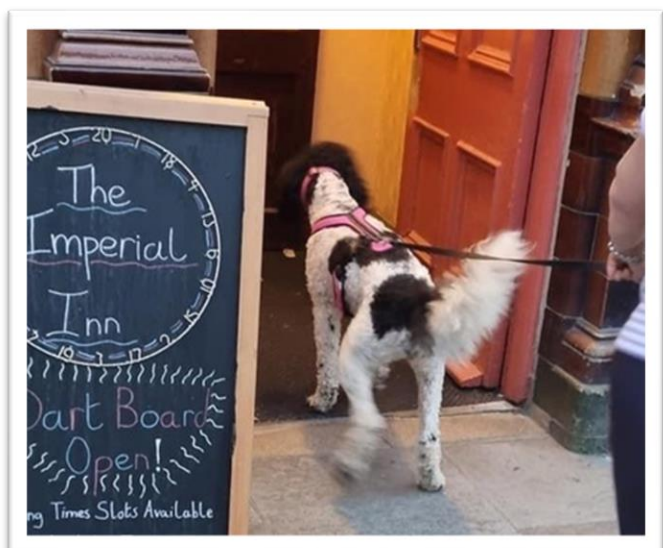 20 1 18 4 13 6 10 15 2
The
Imperial
Inn
Dart Board
Open!
Times Slots Available